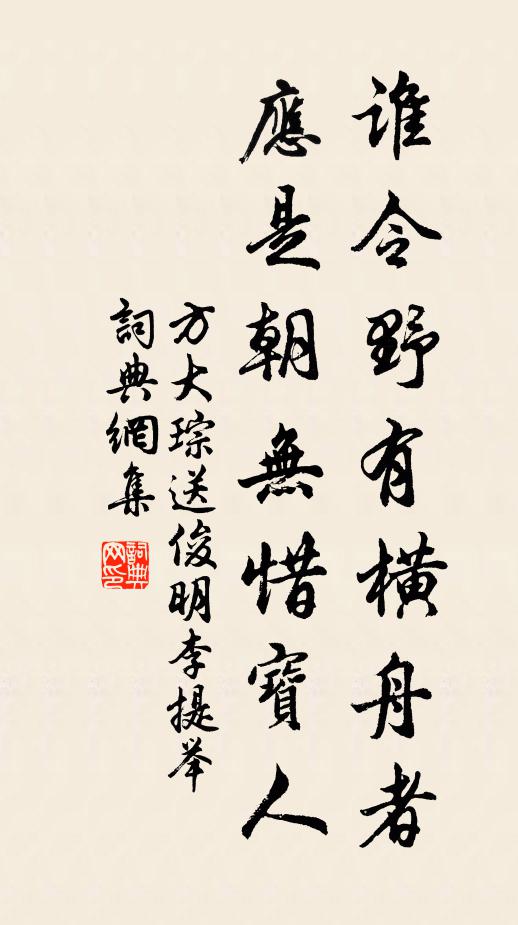 誰令野有橫舟者
應是朝無惜寶人
方大琮送俊明李提举
詞典網集
詞典网印